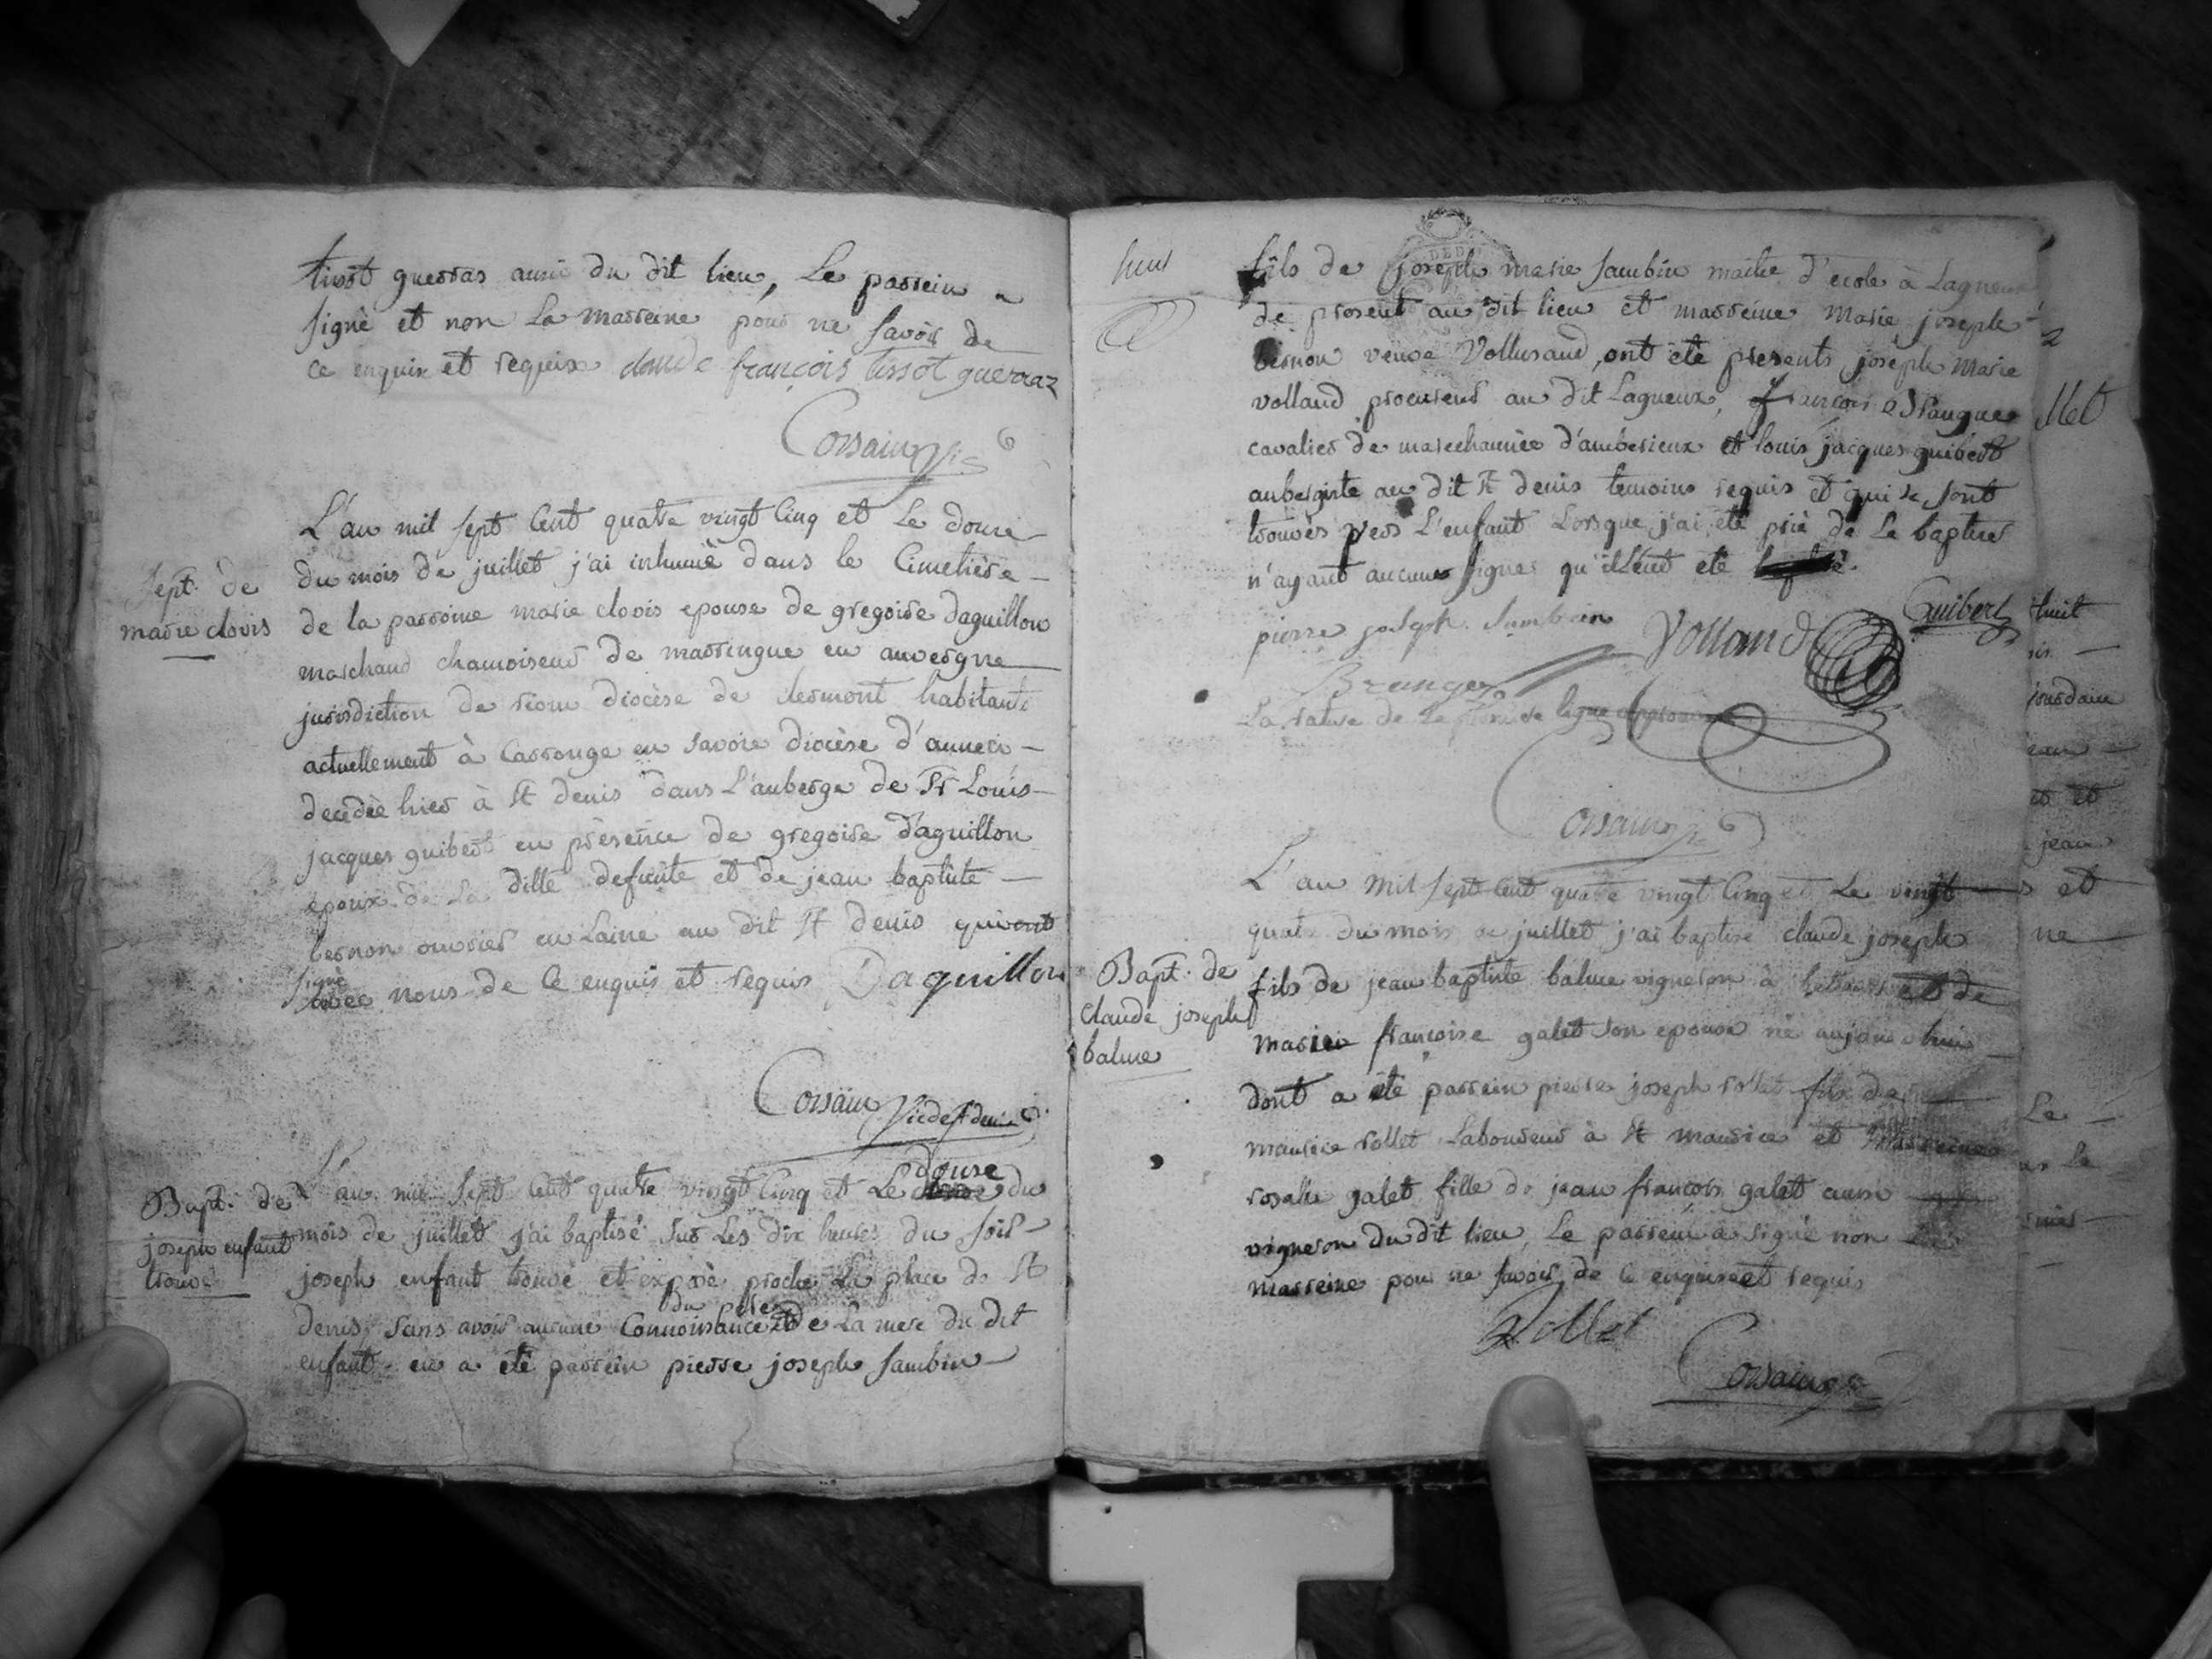 tissot guerras aussi du dit lieu, Le parrein a
signé et non La marreine pour ne savoir de
ce enquis et requise claude françois tissot guerraz
Corsain
Sept. de
marie clovis
L'an mil sept cent quatre vingt cinq et Le douze
du mois de juillet j'ai inhumé dans le Cimetière
de la parroisse marie clovis epouse de gregoire daguillon
marchand chamoiseur de marringue en auvergne
jurisdiction de riom diocèse de clermont habitants
actuellement à Carrouge en savoie diocèse d'anneci
decedée hier à St denis dans L'auberge de Sr Louis
jacques guibert en présence de gregoire daguillon
epoux de La ditte defunte et de jean baptiste
bernon ouvrier en Laine au dit St denis qui ont
signé
avec nous de ce enquis et requis Daguillon
Corsain Vic de St denis
Bapt. de
joseph enfant
trouvé
douze
L'an mil sept cent quatre vingt cinq et Le du
mois de juillet j'ai baptisé sur Les dix heures du soir
joseph enfant trouvé et exposé proche La place de St
du père
denis, sans avoir aucune Connoissance et de La mere du dit
enfant en a été parrein pierre joseph sambin
huit
fils de joseph marie sambin maitre d'ecole à Lagneux
de present au dit lieu et marreine marie joseph
bernon veuve Volluraud, ont été presents joseph marie
volland procureur au dit Lagneux, françois
cavalier de marechaussée d'amberieux et louis jacques guibert
aubergiste au dit St denis temoins requis et qui se sont
trouvés vers L'enfant Lorsque j'ai été prié de Le baptiser
n'ayant aucune signe qu'il eut été
pierre joseph Sambin Volland Guibert
Branger
La rature de La ligne approuvée
Corsain
Bapt. de
claude joseph
balme
L'an mil sept cent quatre vingt cinq et Le vingt
quatre du mois de juillet j'ai baptisé claude joseph
fils de jean baptiste balme vigneron à et de
marie françoise galet son epouse né aujourd'hui
dont a été parrein pierre joseph rollet fils de
maurice rollet Laboureur à St maurice et marreine
rosalie galet fille de jean françois galet aussi
vigneron du dit lieu, Le parrein a signé non La
marreine pour ne savoir de ce enquise et requis
Rollet
Corsain